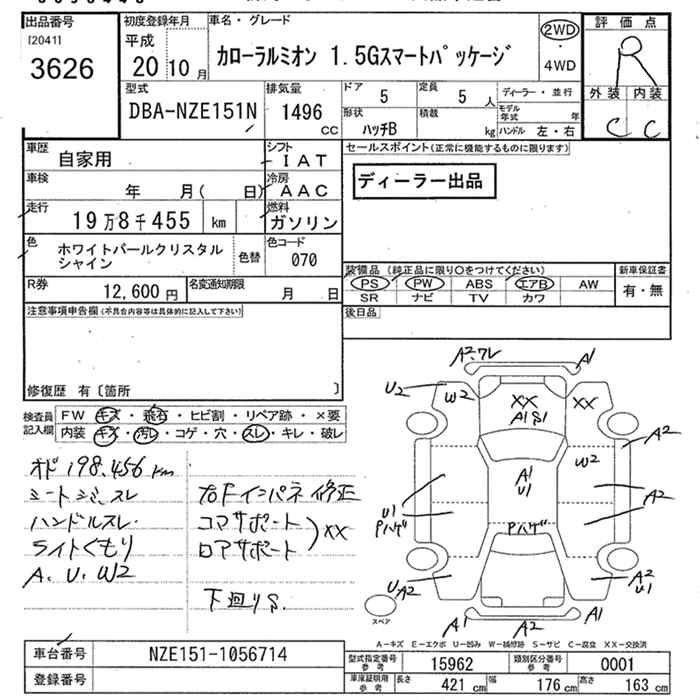 出品番号
[2041]
3626
初度登録年月
平成
20 10 月
車名・グレード
カローラルミオン 1.5Gスマートパッケージ
2WD
・
4WD
評価点
R
外装 内装
C C
型式
DBA-NZE151N
排気量
1496 cc
ドア 5
定員 5 人
形状 ハッチB
積載 kg
ディーラー・並行
モデル年式 年
ハンドル 左・右
車歴 自家用
シフト IAT
車検 年 月( 日)
冷房 AAC
走行 19万8千455 km
燃料 ガソリン
色 ホワイトパールクリスタルシャイン
色替
色コード 070
R券 12,600 円
名変通知期限 月 日
セールスポイント(正常に機能するものに限ります)
ディーラー出品
装備品 (純正品に限り○をつけてください)
PS PW ABS エアB AW
SR ナビ TV カワ
新車保証書
有・無
後日品
注意事項申告欄(不具合内容等は具体的に記入して下さい)
修復歴 有〔箇所 〕
検査員記入欄
FW キズ・飛石・ヒビ割・リペア跡・×要
内装 キズ・汚レ・コゲ・穴・スレ・キレ・破レ
オド 198.456 km
シートシミ、スレ
ハンドルスレ
ライトくもり
A、U、W2
右Fインパネ修正
コアサポート
ロアサポート
)XX
下廻りS.
A2.ワレ A1
U2 W2 XX XX
A1 S1
A2
W2
A1
U1
A2
U1
Pハゲ
Pハゲ
U
A2
A2
U1
A1 A2 A1
スペア
A-キズ E-エクボ U-凹み W-補修跡 S-サビ C-腐食 XX-交換済
車台番号 NZE151-1056714
登録番号
型式指定番号 参考 15962
類別区分番号 参考 0001
車庫証明用 参考
長さ 421 cm
幅 176 cm
高さ 163 cm